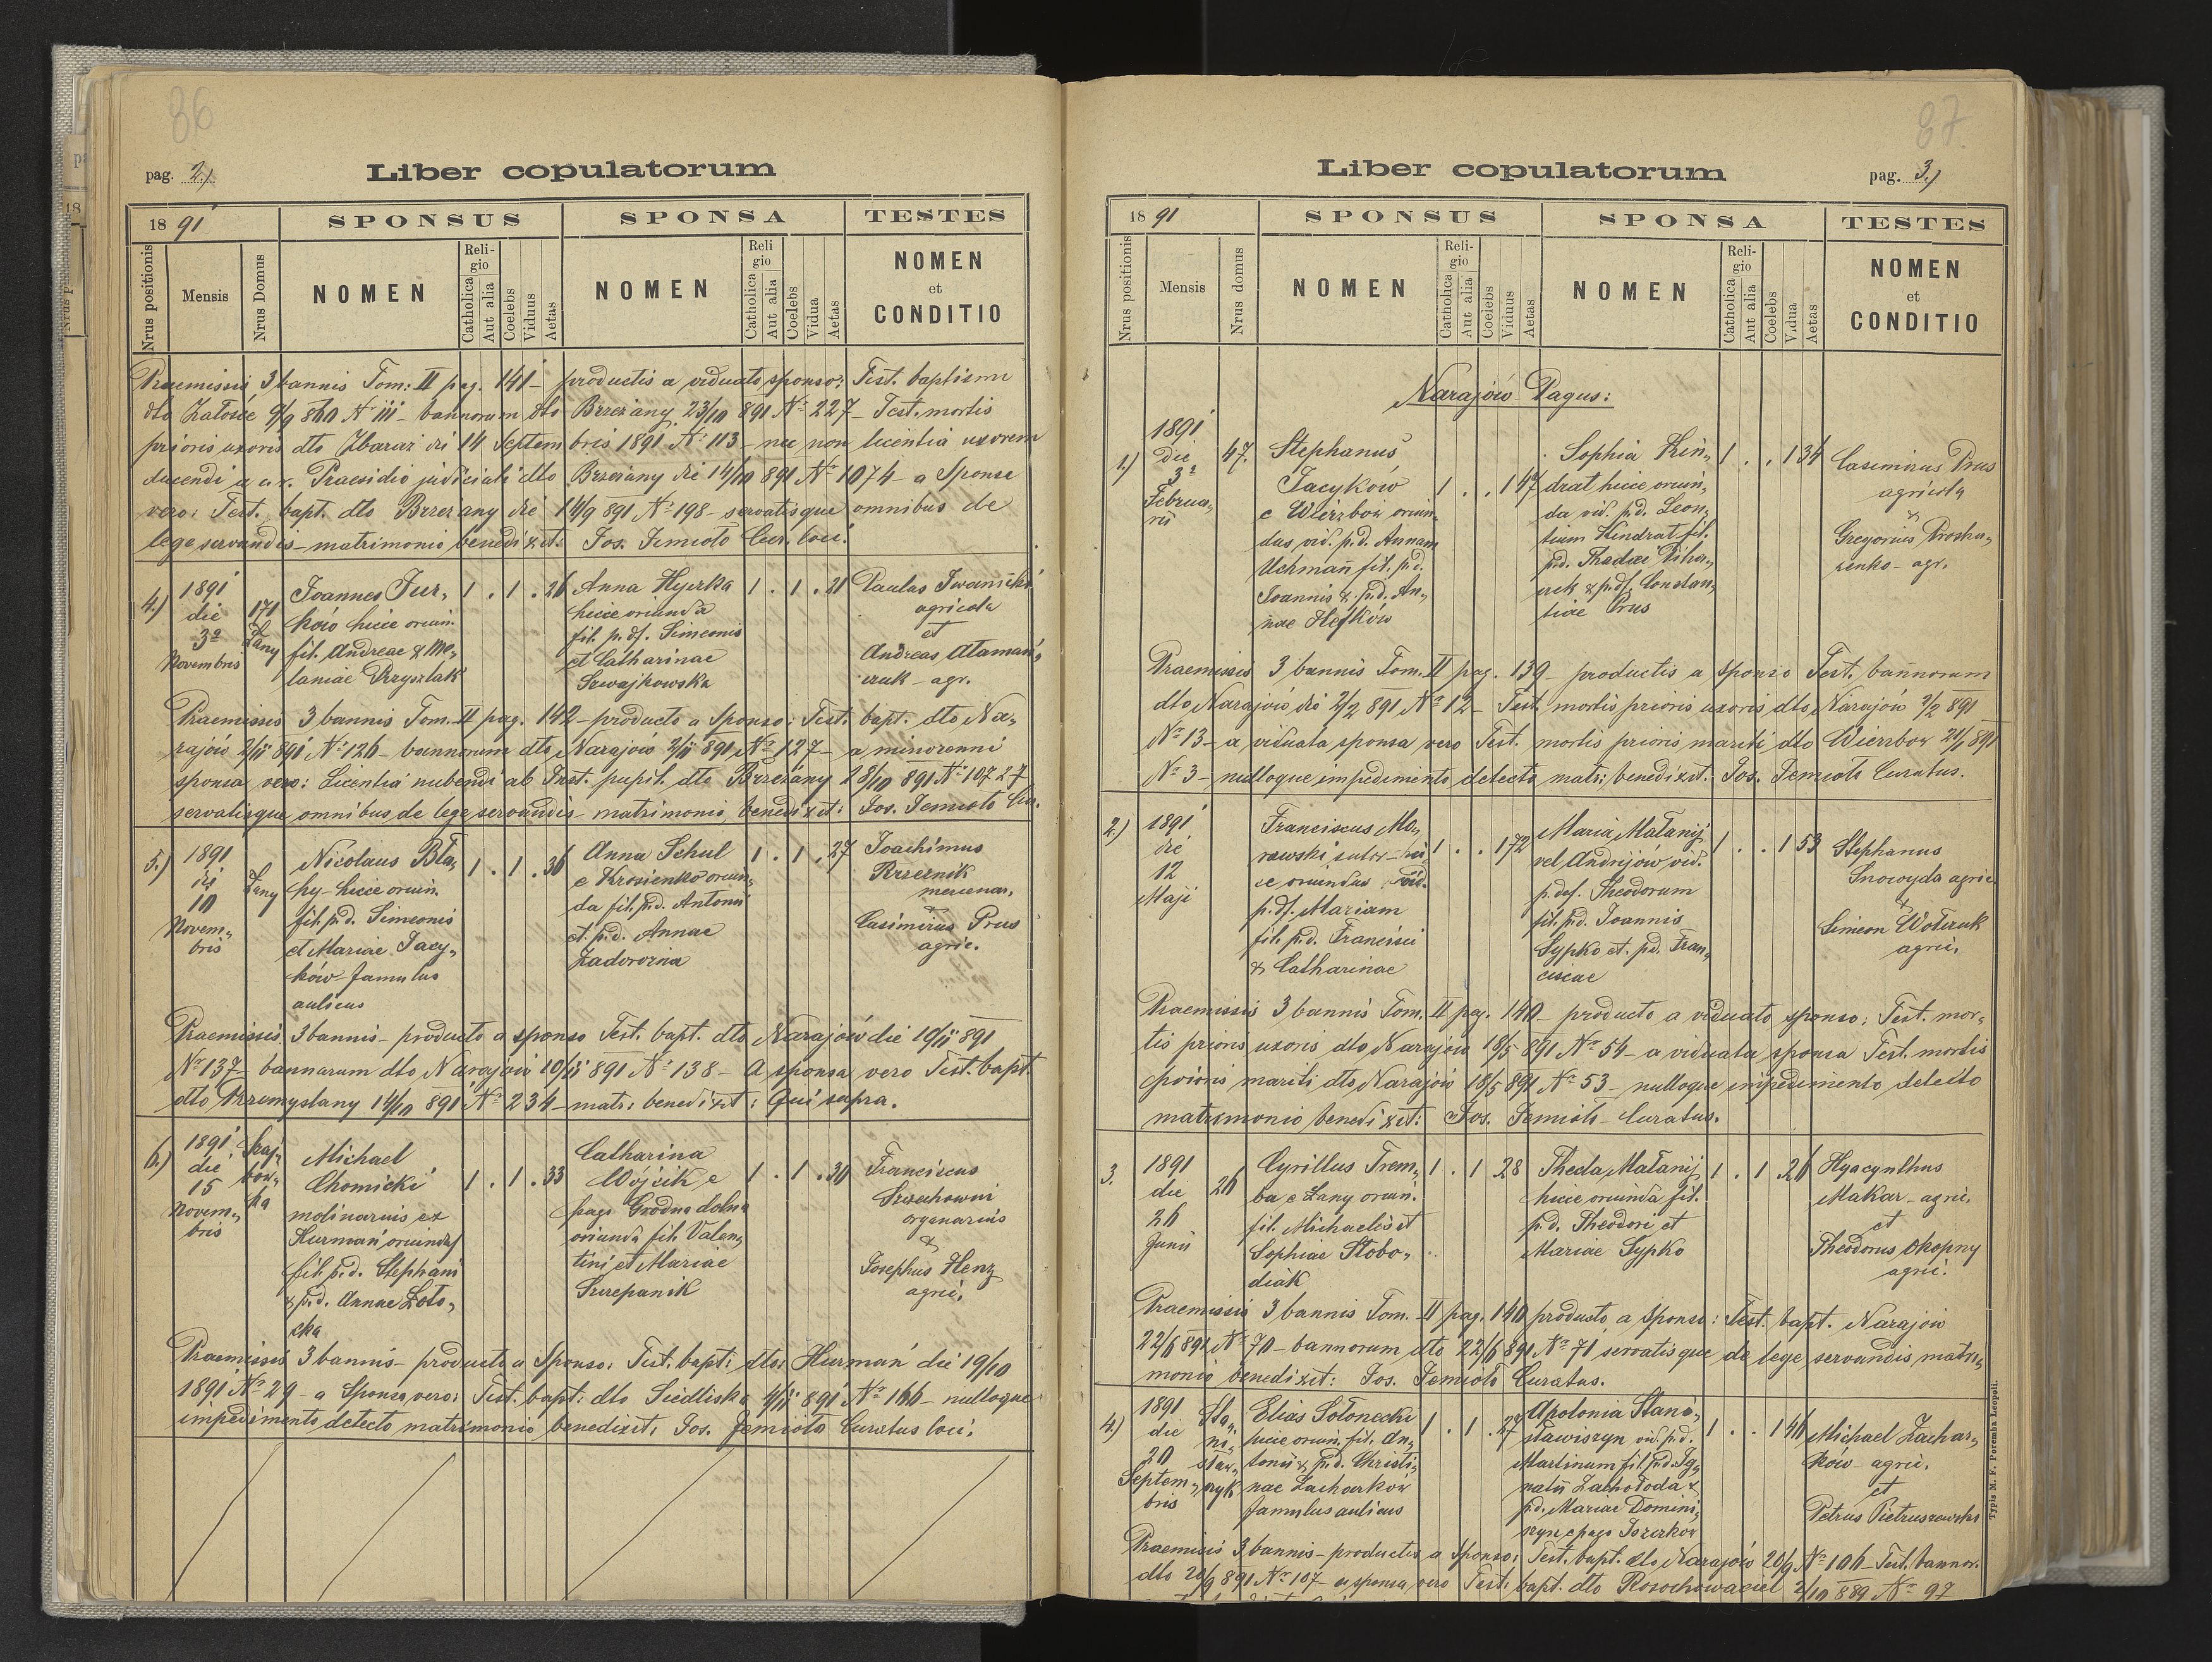 86
pag. 2.)
Liber copulatorum
18 91
SPONSUS
SPONSA
TESTES
Nrus positionis
Mensis
Nrus Domus
NOMEN
Religio
Catholica
Aut alia
Coelebs
Viduus
Aetas
NOMEN
Religio
Catholica
Aut alia
Coelebs
Vidua
Aetas
NOMEN
et
CONDITIO
Praemissis 3 bannis Tom: II pag. 141 - productis a viduato sponso: Test. baptismi
dto Załośce 9/9 860 N III - bannorum dto Brzeżany 23/10 891 Nr 227 - Test. mortis
prioris uxoris dto Zbaraż die 14 Septembris 1891 Nr 113 - nec non licentia uxorem
ducendi a c.r. Praesidio judiciali dto Brzeżany die 14/10 891 Nr 1074 - a Sponsa
vero: Test. bapt. dto Brzeżany die 14/9 891 Nr 198 - servatisque omnibus de
lege servandis - matrimonio benedixit: Jos. Jemioło Cur. loci.
4.)
1891
die
3a
Novembris
171
Łany
Joannes Jur-
ków hicce oriun.
fil. Andreae & Me-
laniae Przyszlak
1 . 1 . 26
Anna Hyrka
hicce oriunda
fil. p.df. Simeonis
et Catharinae
Szwajkowska
1 . 1 . 21
Paulus Iwanicki
agricola
et
Andreas Ataman-
czuk - agr.
Praemissis 3 bannis Tom. II pag. 142 - producto a Sponso: Test. bapt. dto Na-
rajów 2/11 891 Nr 126 - bannorum dto Narajów 2/11 891 Nr 127 - a minorenni
sponsa vero: Licentia nubendi ab Inst. pupil. dto Brzeżany 28/10 891 Nr 10727
servatisque omnibus de lege servandis - matrimonio benedixit: Jos. Jemioło Cur.
5.)
1891
die
10
Novem-
bris
Łany
Nicolaus Bła-
hy - hicce oriun.
fil. p.d. Simeonis
et Mariae Jacy-
ków famulus
aulicus
1 . 1 . 36
Anna Schul
e Krosienko oriun-
da fil. p.d. Antonii
et p.d. Annae
Zadorozna
1 . 1 . 27
Joachimus
Brzeznik
mercenar.
&
Casimirus Prus
agric.
Praemissis 3 bannis - producto a sponso Test. bapt. dto Narajów die 10/11 891
Nr 137 - bannorum dto Narajów 10/11 891 Nr 138 - a sponsa vero Test. bapt.
dto Przemyslany 14/10 891 Nr 234 - matr: benedixit: Qui supra.
6.)
1891
die
15
Novem-
bris
Michael
Chomicki
molinarius ex
Kurmań oriundus
fil. p.d. Stephani
& p.d. Annae Zoło-
cka
1 . 1 . 33
Catharina
Wójcik e
pago Grodna dolna
oriunda fil. Valen-
tini et Mariae
Szczepanik
1 . 1 . 30
Franciscus
organarius
&
Josephus Henz
agric.
Praemissis 3 bannis - producto a Sponso: Test. bapt: dto: Kurmań die 19/10
1891 Nr 29 - a Sponsa vero: Test. bapt: dto Siedliska 4/11 891 Nr 166 - nulloque
impedimento detecto matrimonio benedixit: Jos. Jemioło Curatus loci.
87.
Liber copulatorum
pag. 3.)
18 91
SPONSUS
SPONSA
TESTES
Nrus positionis
Mensis
Nrus domus
NOMEN
Religio
Catholica
Aut alia
Coelebs
Viduus
Aetas
NOMEN
Religio
Catholica
Aut alia
Coelebs
Vidua
Aetas
NOMEN
et
CONDITIO
Narajów Pagus:
1.)
1891
die
3a
Februa-
rii
47.
Stephanus
Jacyków
e Wierzbow oriun-
dus vid. p.d. Annam
Uchmań fil. p.d.
Joannis & p.d. An-
nae Hefków
1 . . 1 47
Sophia Kin-
drat hicce oriun-
da vid. p.d. Leon-
tium Kindrat fil.
p.d. Thadaei
& p.df. Constan-
tiae Prus
1 . . 1 34
Casimirus Prus
agricola
&
Gregorius Prosha-
renko - agr.
Praemissis 3 bannis Tom. II pag. 139 - productis a sponso Test. bannorum
dto Narajów die 2/2 891 Nr 12 - Test. mortis prioris uxoris dto Narajów 2/2 891
Nr 13 - a viduata sponsa vero Test. mortis prioris mariti dto Wierzbow 21/1 891
Nr 3 - nulloque impedimento detecto matr: benedixit: Jos. Jemioło Curatus.
2.)
1891
die
12
Maji
Franciscus Mo-
rawski sutor - hic-
ce oriundus vid.
p.df. Mariam
fil. p.d. Francisci
& Catharinae
1 . . 1 72
Maria Małanij
vel Andrijów vid.
p.def. Theodorum
fil. p.d. Joannis
Sypko et. p.d. Fran-
ciscae
1 . . 1 53
Stephanus
Snowyda agric.
&
Simeon Wołczuk
agric.
Praemissis 3 bannis Tom. II pag. 140 - producto a viduato sponso: Test. mor-
tis prioris uxoris dto Narajów 18/5 891 Nr 54 - a viduata sponsa Test. mortis
prioris mariti dto Narajów 18/5 891 Nr 53 - nulloque impedimento detecto
matrimonio benedixit: Jos. Jemioło - Curatus.
3.
1891
die
26
Junii
26
Cyrillus Trem-
ba e Łany oriun.
fil. Michaelis et
Sophiae Słobo-
diak
1 . 1 28
Thecla Małanij
hicce oriunda fil.
p.d. Theodori et
Mariae Sypko
1 . 1 . 26
Hyacynthus
Makar - agric.
et
Theodorus Okopny
agric.
Praemissis 3 bannis Tom. II pag. 140 producto a Sponso: Test. bapt. Narajów
22/6 891 Nr 70 - bannorum dto 22/6 891 Nr 71 servatisque de lege servandis matri-
monio benedixit: Jos. Jemioło Curatus.
4.)
1891
die
20
Septem-
bris
Elias Sołonecki
hicce oriun. fil. An-
tonii & p.d. Christi-
nae Zacharków
famulus aulicus
1 . 1 . 27
Apolonia Stani-
sławiszyn vid. p.d.
Martinum fil. p.d. Ig-
natii &
p.d. Mariae Domini-
szyn e pago Iszczków
1 . . 1 46
Michael Zachar-
ków agric.
et
Petrus Pietruszewski
Praemissis 3 bannis - productis a Sponso: Test. bapt. dto Narajów 20/9 Nr 106 - Test. bannor.
dto 20/9 891 Nr 107 - a sponsa vero Test. bapt. dto Rosochowaciel 2/10 889 Nr 97
Typis M. F. Poremba Leopoli.